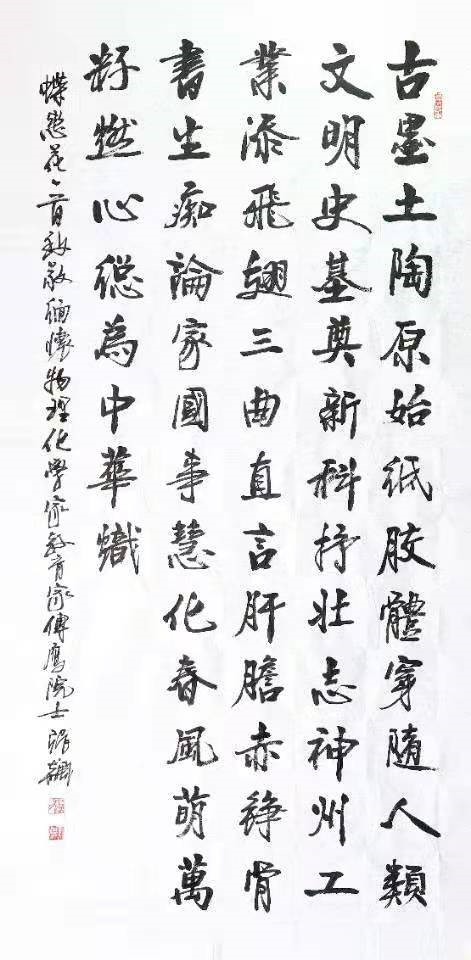 古墨土陶原始紙胶體穿隨人類
文明史基奠新科抒壯志神州工
業添飛翅三曲直言肝膽赤錚骨
書生痴論家國事慧化春風萌萬
籽燃心總為中華熾
蝶戀花一首致敬緬懷物理化學家教育家傅鷹院士